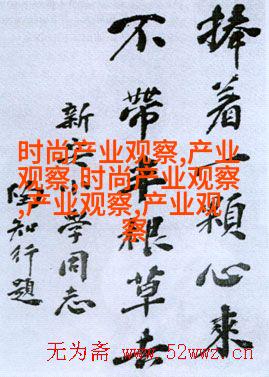 捧着一颗心來
不帶半根草去
新安小学同志
陶知行題
时尚产业观察,产业
观察,时尚产业观察
,产业观察,产业观
察
无为斋 www.52wwz.cn